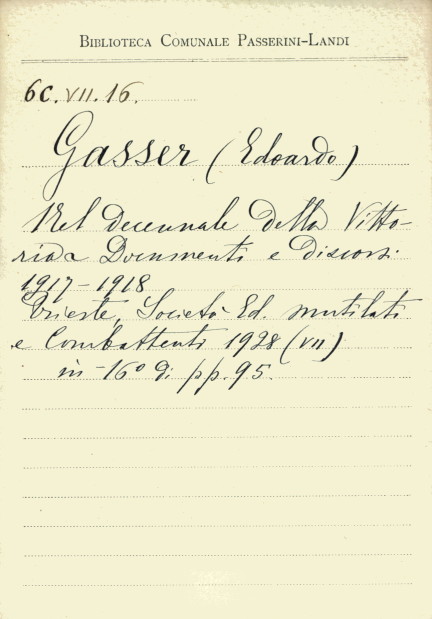 BIBLIOTECA COMUNALE PASSERINI-LANDI
6C. VII. 16.
Gasser (Edoardo)
Nel decennale della Vitto-
ria Documenti e discorsi
1917-1918
Trieste, Società Ed. mutilati
e Combattenti 1928 (VII)
in-16° di pp. 95.